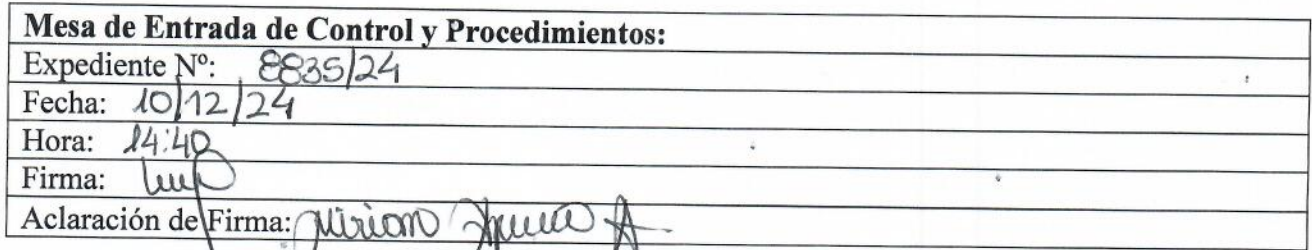 Mesa de Entrada de Control y Procedimientos:
Expediente Nº: 8835/24
Fecha: 10/12/24
Hora: 14:40
Firma:
Aclaración de Firma: Miriam